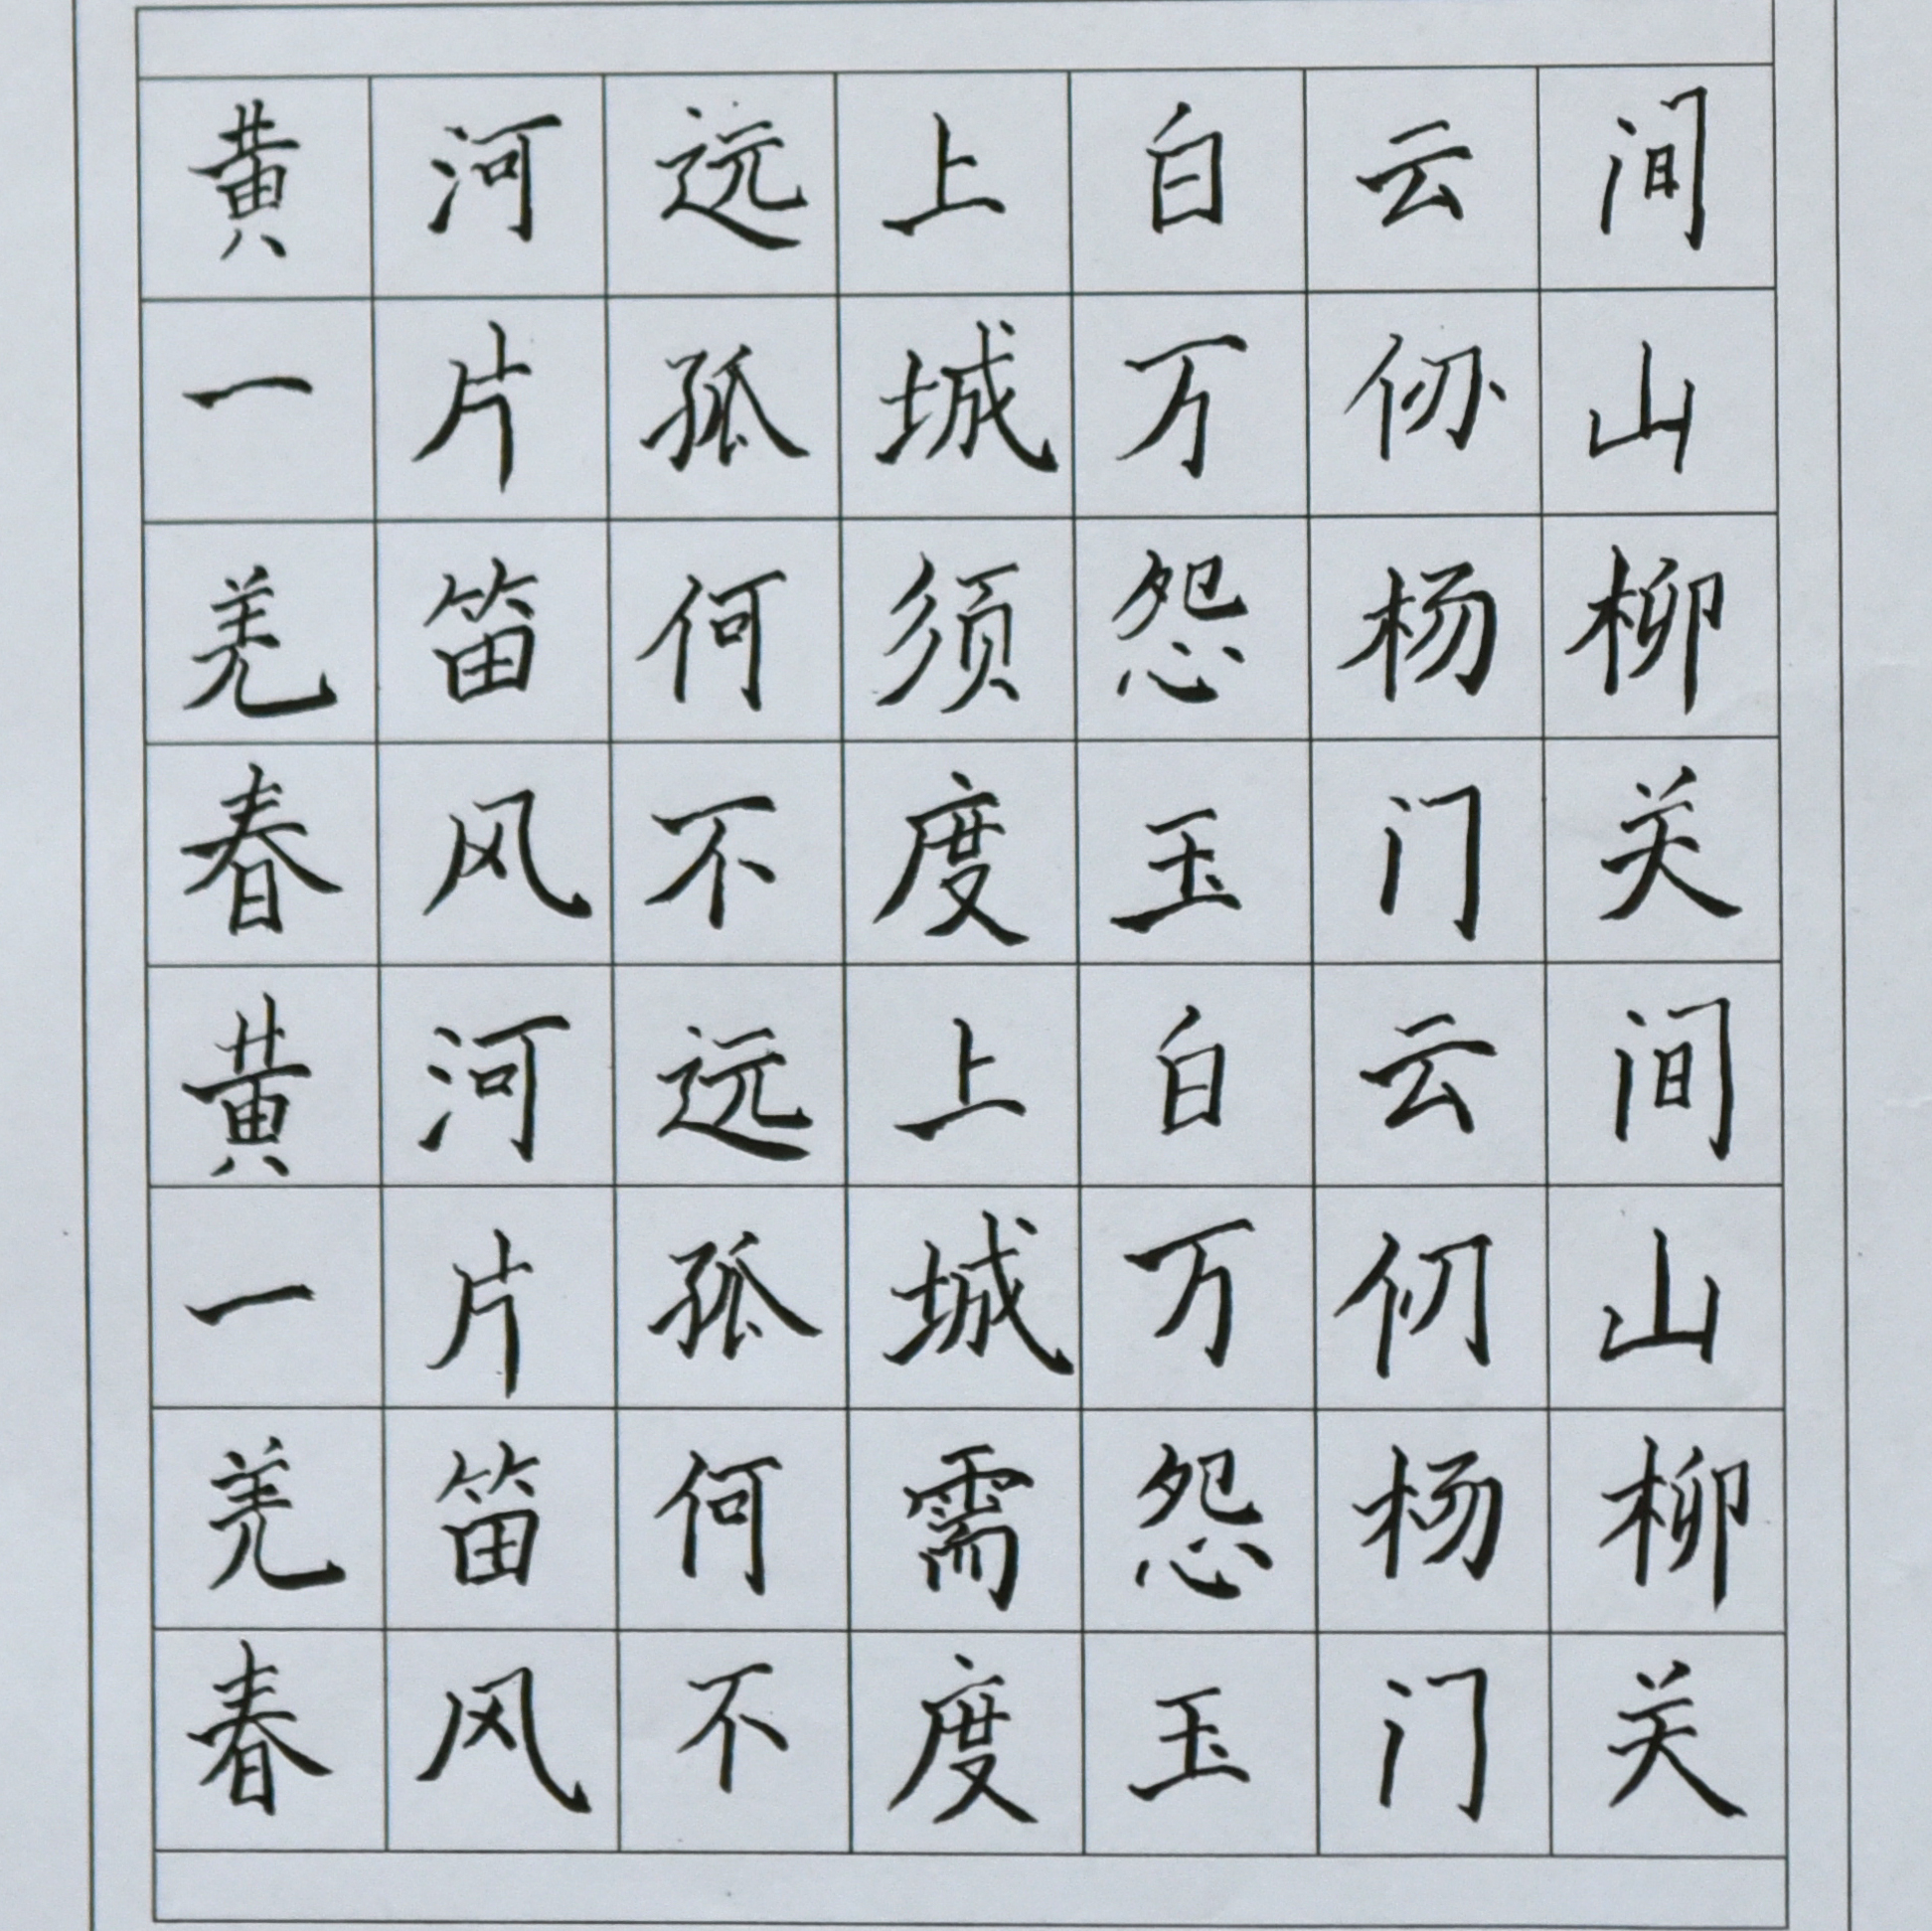 黄河远上白云间
一片孤城万仞山
羌笛何须怨杨柳
春风不度玉门关
黄河远上白云间
一片孤城万仞山
羌笛何需怨杨柳
春风不度玉门关